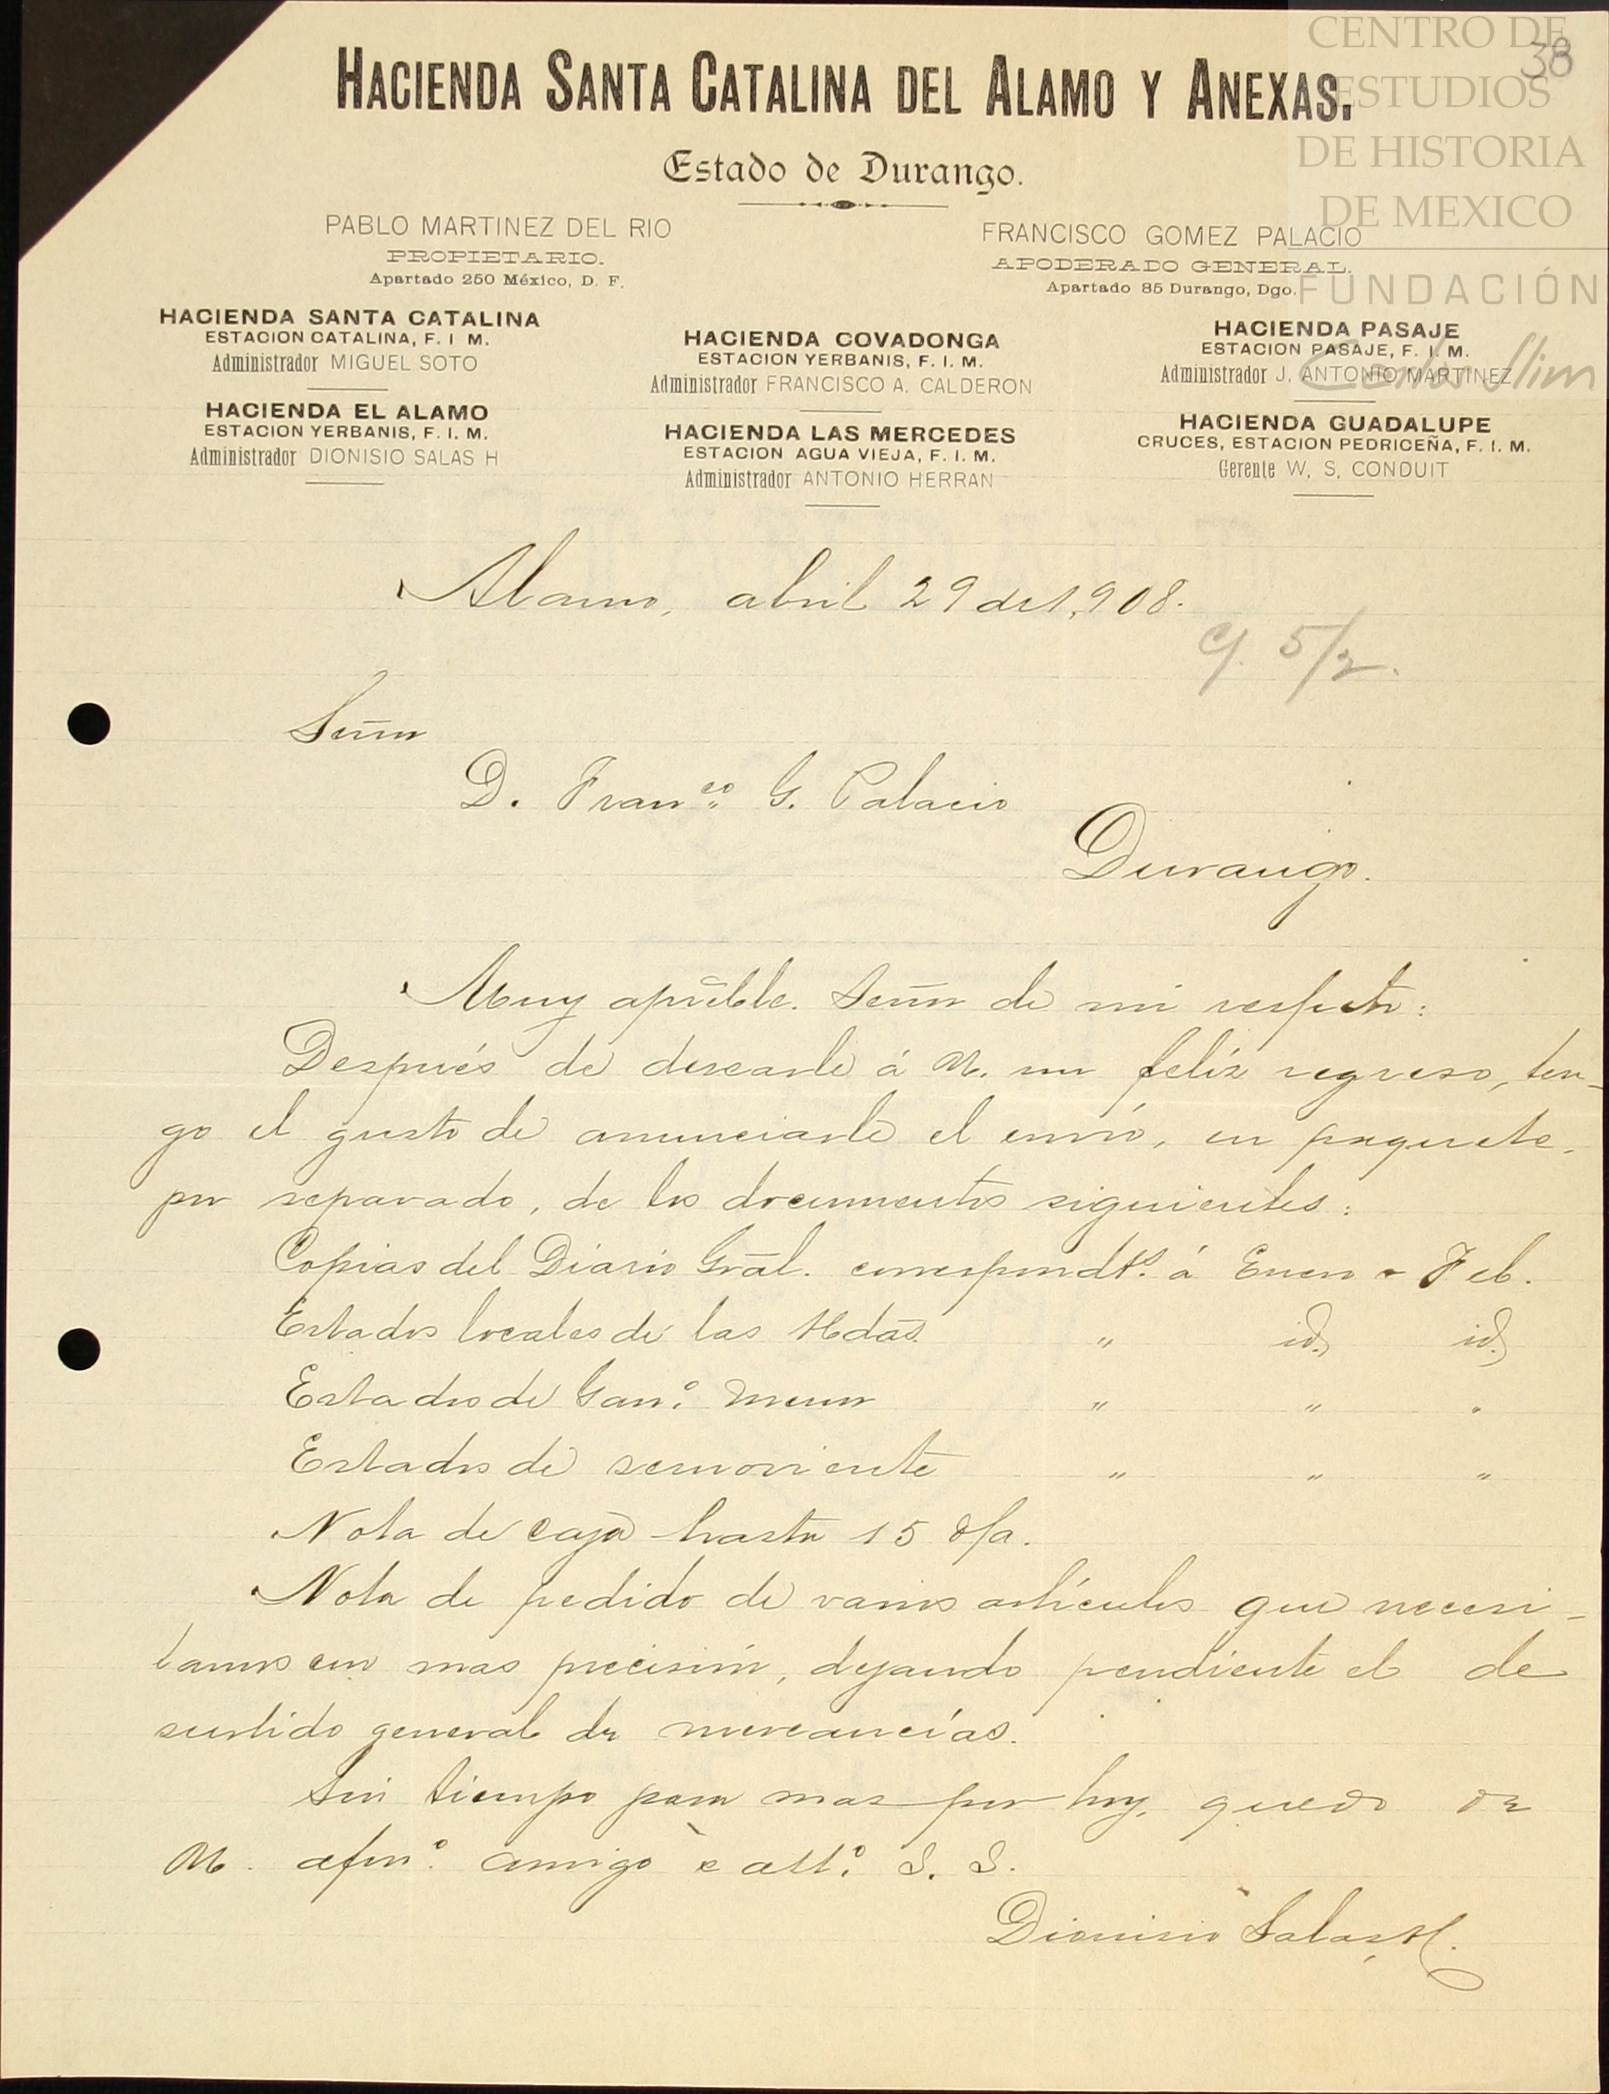 CENTRO DE
ESTUDIOS
DE HISTORIA
DE MEXICO
FUNDACIÓN
Carlos Slim
38
HACIENDA SANTA CATALINA DEL ALAMO Y ANEXAS.
Estado de Durango.
PABLO MARTINEZ DEL RIO
PROPIETARIO.
Apartado 250 México, D. F.
FRANCISCO GOMEZ PALACIO
APODERADO GENERAL.
Apartado 85 Durango, Dgo.
HACIENDA SANTA CATALINA
ESTACION CATALINA, F. I M.
Administrador MIGUEL SOTO
HACIENDA EL ALAMO
ESTACION YERBANIS, F. I. M.
Administrador DIONISIO SALAS H
HACIENDA COVADONGA
ESTACION YERBANIS, F. I. M.
Administrador FRANCISCO A. CALDERON
HACIENDA LAS MERCEDES
ESTACION AGUA VIEJA, F. I. M.
Administrador ANTONIO HERRAN
HACIENDA PASAJE
ESTACION PASAJE, F. I. M.
Administrador J. ANTONIO MARTINEZ
HACIENDA GUADALUPE
CRUCES, ESTACION PEDRICEÑA, F. I. M.
Gerente W. S. CONDUIT
Alamo, abril 29 de 1,908.
c/. 5/2.
Señor
D. Franco. G. Palacio
Durango.
Muy apréble. Señor de mi respeto:
Después de desearle á U. un felíz regreso, ten-
go el gusto de anunciarle el envío, en paquete
por separado, de los documentos siguientes:
Copias del Diario Gral. correspondts. á Enero y Feb.
Estados locales de las Hdas. " id. id.
Estados de Gano. menor " " "
Estados de semoviente " " "
Nota de caja hasta 15 d/a.
Nota de pedido de varios artículos que necesi-
tamos con mas precisión, dejando pendiente el de
surtido general de mercancías.
Sin tiempo para mas por hoy, quedo de
U. afmo. amigo é atto. S. S.
Dionisio Salas H.